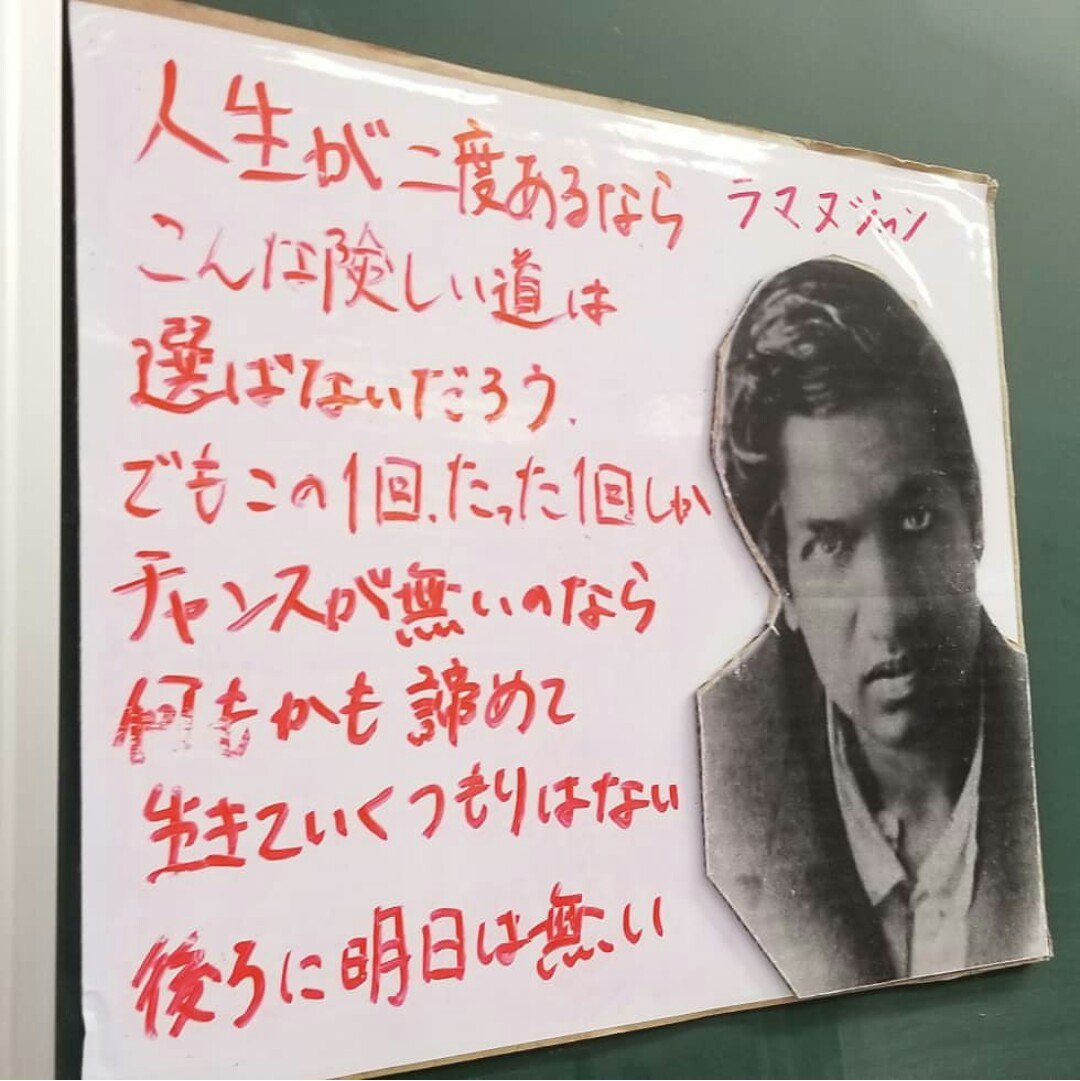 人生が二度あるなら
ラマヌジャン
こんな険しい道は
選ばないだろう.
でもこの1回.たった1回しか
チャンスが無いのなら
何もかも諦めて
生きていくつもりはない
後ろに明日は無い